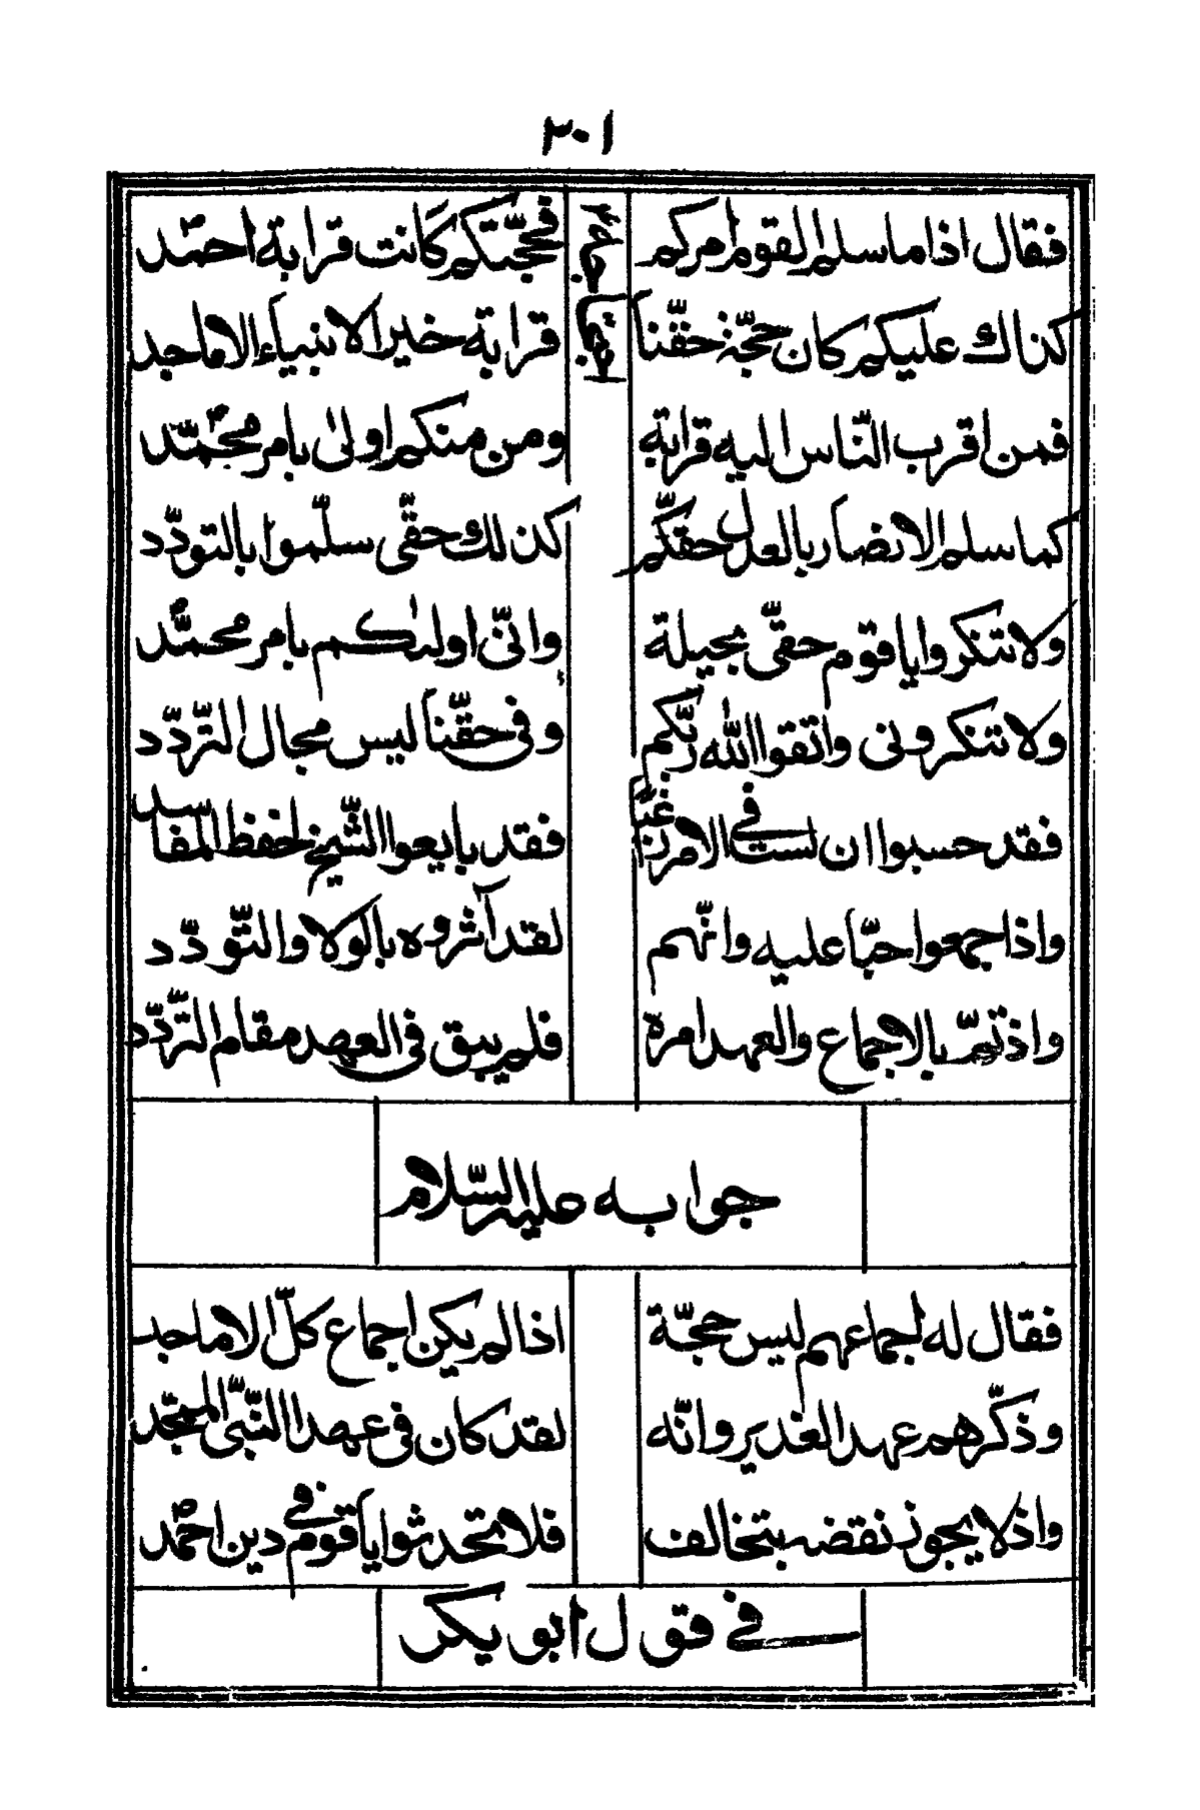 ٣٠١
فقال اذا ما سلم القوم امركم فحجّتكم كانت قرابة احمد
كذالك عليكم كان حجّة حقّنا قرابة خير الانبياء الاماجد
فمن اقرب النّاس اليه قرابة ومن منكم اولیٰ بامر محمّد
كما سلم الانصار بالعدل حقكّم كذلك حقّی سلّموا بالتودّد
ولا تنكروا ياقوم حقّی بحيلة وانّی اولیٰكم بامر محمّد
ولا تنكرونی واتقوا الله ربّكم وفی حقّنا ليس مجال التّردّد
فقد حسبوا ان لست فی الامر فقد بايعوا الشّيخ لحفظ المفاسد
واذا جمعوا حبّا عليه وانّهم لقد آثروه بالولا والتّودّد
واذ تمّ بالاجماع والعهد امره فلم يبق فی العهد مقام التّردّد
جوابه عليه السّلام
فقال له لجماعهم ليس حجّة اذا لم يكن اجماع كلّ الاماجد
وذكّرهم عهد الغدير وانّه لقد كان فی عهد النّبیّ الممجّد
واذ لا يجوز نقضه بتخالف فلا تحدثوا ياقوم فی دين احمد
فی قول ابو بكر